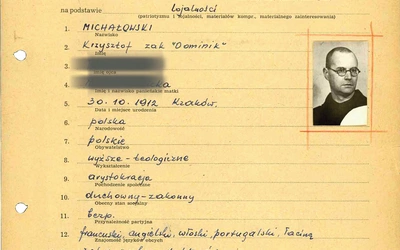 na podstawie lojalności
(patriotyzmu i lojalności, materiałów komp., materialnego zainteresowania)
1. MICHAŁOWSKI
Nazwisko
2. Krzysztof zak "Dominik"
Imię
3.
4.
Imię i nazwisko panieńskie matki
5. 30.10.1912 Kraków.
Data i miejsce urodzenia
6. polska
Narodowość
7. polskie
Obywatelstwo
8. wyższe-teologiczne
Wykształcenie
9. arystokracja
Pochodzenie społeczne
10. duchowny-zakonny
Obecny stan socjalny
11. bezp.
Przynależność partyjna
12. francuski, angielski, włoski, portugalski, łacina
Znajomość języków obcych